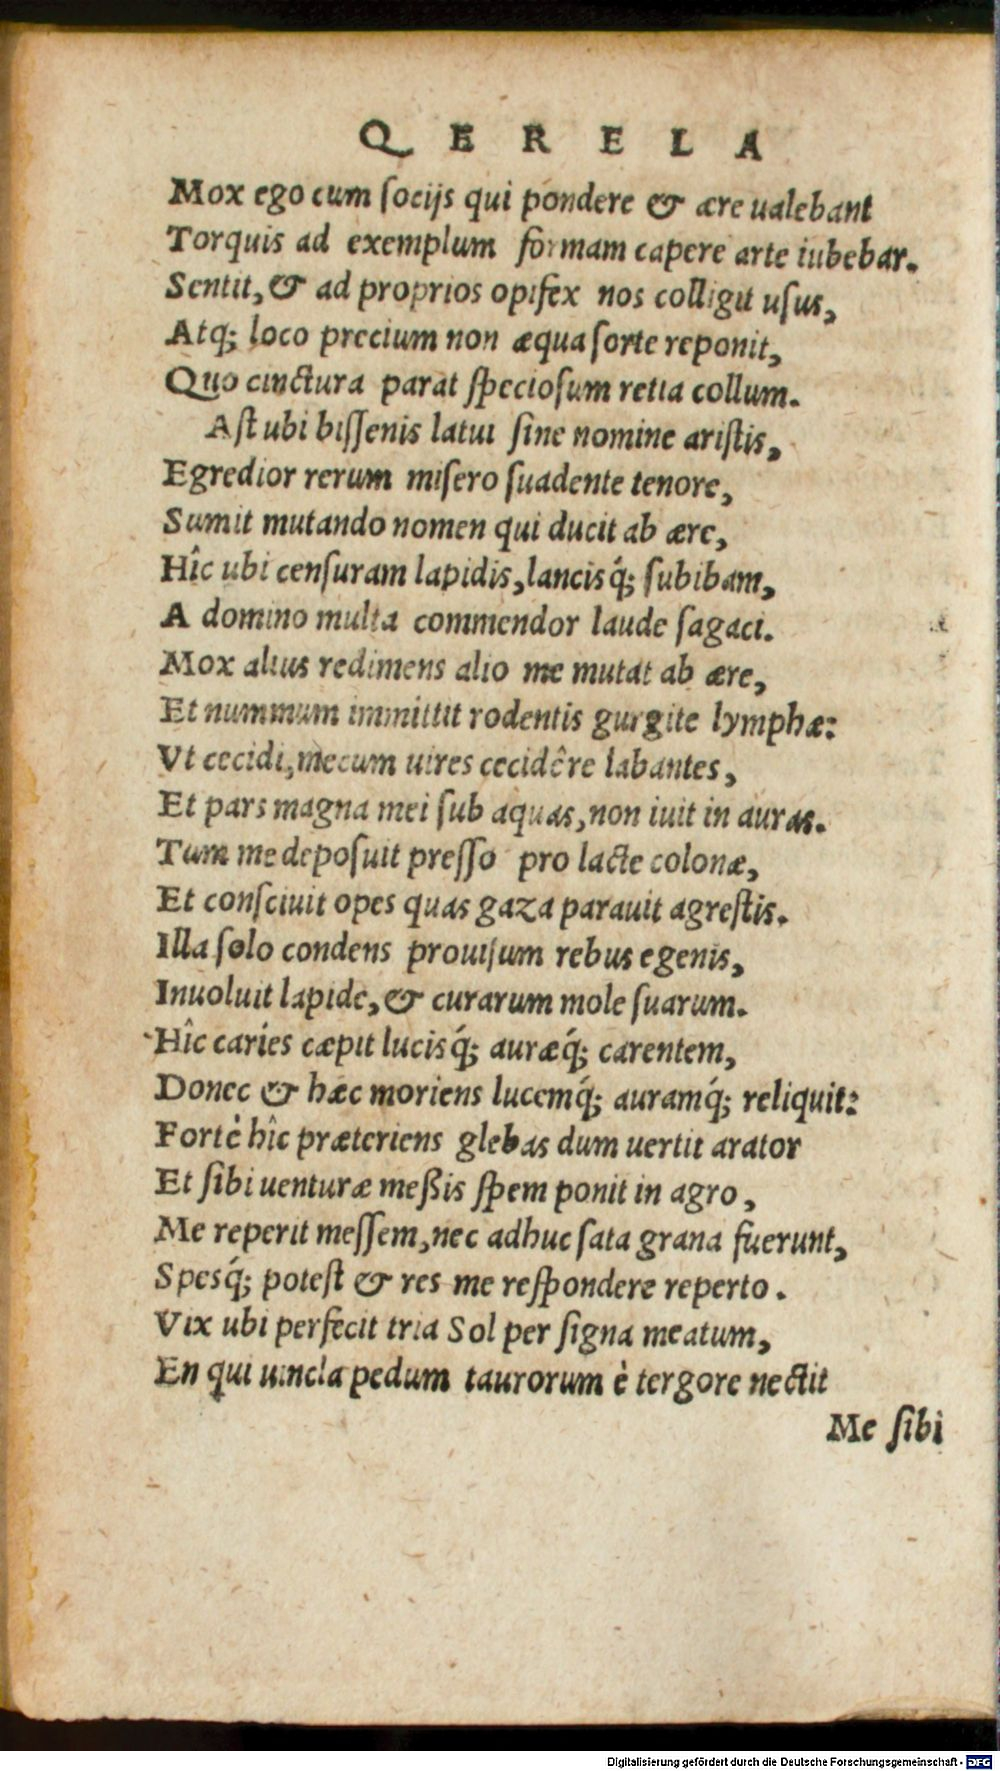 QERELA
Mox ego cum socijs qui pondere & ære ualebant
Torquis ad exemplum formam capere arte iubebar.
Sentit, & ad proprios opifex nos colligit usus,
Atq; loco precium non æqua sorte reponit,
Quo cinctura parat speciosum retia collum.
Ast ubi bissenis latui sine nomine aristis,
Egredior rerum misero suadente tenore,
Sumit mutando nomen qui ducit ab ære,
Hîc ubi censuram lapidis, lancisq́; subibam,
A domino multa commendor laude sagaci.
Mox alius redimens alio me mutat ab ære,
Et nummum immittit rodentis gurgite lymphæ:
Vt cecidi, mecum uires cecidêre labantes,
Et pars magna mei sub aquas, non iuit in auras.
Tum me deposuit presso pro lacte colonæ,
Et consciuit opes quas gaza parauit agrestis.
Illa solo condens prouisum rebus egenis,
Inuoluit lapide, & curarum mole suarum.
Hîc caries cæpit lucisq́; auræq́; carentem,
Donec & hæc moriens lucemq́; auramq́; reliquit:
Fortè hîc præteriens glebas dum uertit arator
Et sibi uenturæ meßis spem ponit in agro,
Me reperit messem, nec adhuc sata grana fuerunt,
Spesq́; potest & res me respondere reperto.
Vix ubi perfecit tria Sol per signa meatum,
En qui uincla pedum taurorum è tergore nectit
Me sibi
Digitalisierung gefördert durch die Deutsche Forschungsgemeinschaft - DFG